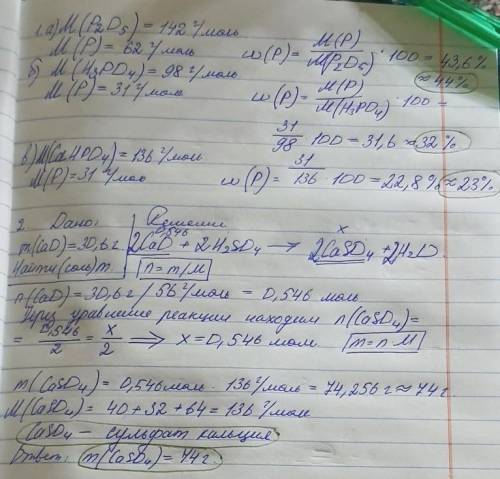 1.а) M(P₂O₅) = 142 г/моль
M(P) = 62 г/моль ω(P) = M(P)/M(P₂O₅) · 100 = 43,6% ≈ 44%
б) M(H₃PO₄) = 98 г/моль
M(P) = 31 г/моль ω(P) = M(P)/M(H₃PO₄) · 100 =
31/98 · 100 = 31,6 ≈ 32%
в) M(CaHPO₄) = 136 г/моль
M(P) = 31 г/мол ω(P) = 31/136 · 100 = 22,8% ≈ 23%
2. Дано: Решение
m(CaO) = 30,6 г. 0,546 x
2CaO + 2H₂SO₄ → 2CaSO₄ + 2H₂O
Найти: (соль) m. n = m/M
n(CaO) = 30,6 г / 56 г/моль = 0,546 моль
Через уравнение реакции находим n(CaSO₄) =
= 0,546/2 = x/2 ⟹ x = 0,546 мол. m = n·M
m(CaSO₄) = 0,546 моль · 136 г/моль = 74,256 г ≈ 74 г.
M(CaSO₄) = 40 + 32 + 64 = 136 г/моль
CaSO₄ – сульфат кальция
Ответ: m(CaSO₄) = 74 г.